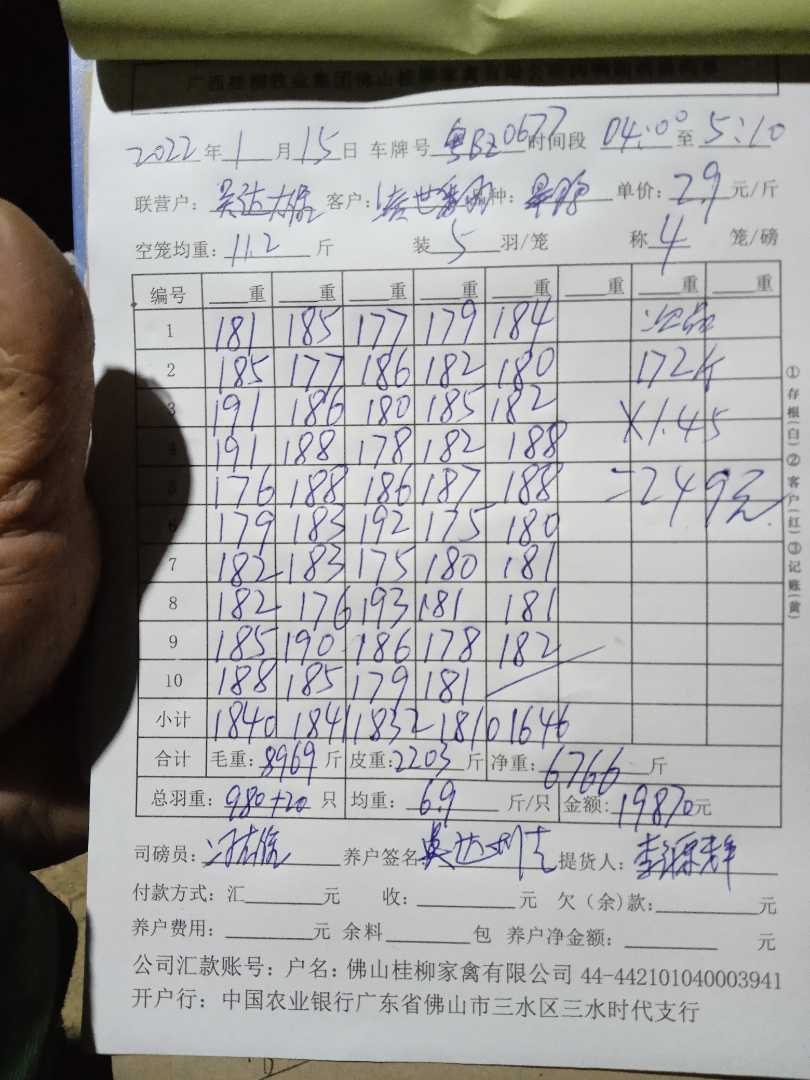 广西桂柳牧业集团佛山桂柳家禽有限公司
2022年1月15日 车牌号 粤BZ0677 时间段 04:00至5:10
联营户: 客户: 品种: 单价:2.9元/斤
空笼均重:11.2斤 装5羽/笼 称4笼/磅
编号 重 重 重 重 重 重 重 重
1 181 185 177 179 184
2 185 177 186 182 180 172斤
3 191 186 180 185 182 ×1.45
4 191 188 178 182 188
5 176 188 186 187 188 =249元
6 179 183 192 175 180
7 182 183 175 180 181
8 182 176 193 181 181
9 185 190 186 178 182
10 188 185 179 181
小计 1840 1841 1832 1810 1646
合计 毛重:8969斤 皮重:2203斤 净重:6766斤
总羽重:980+20只 均重:6.9斤/只 金额:19870元
司磅员: 养户签名 提货人:
付款方式:汇 元 收: 元 欠(余)款: 元
养户费用: 元 余料 包 养户净金额: 元
公司汇款账号:户名:佛山桂柳家禽有限公司 44-442101040003941
开户行:中国农业银行广东省佛山市三水区三水时代支行
①存根(白)②客户(红)③记账(黄)